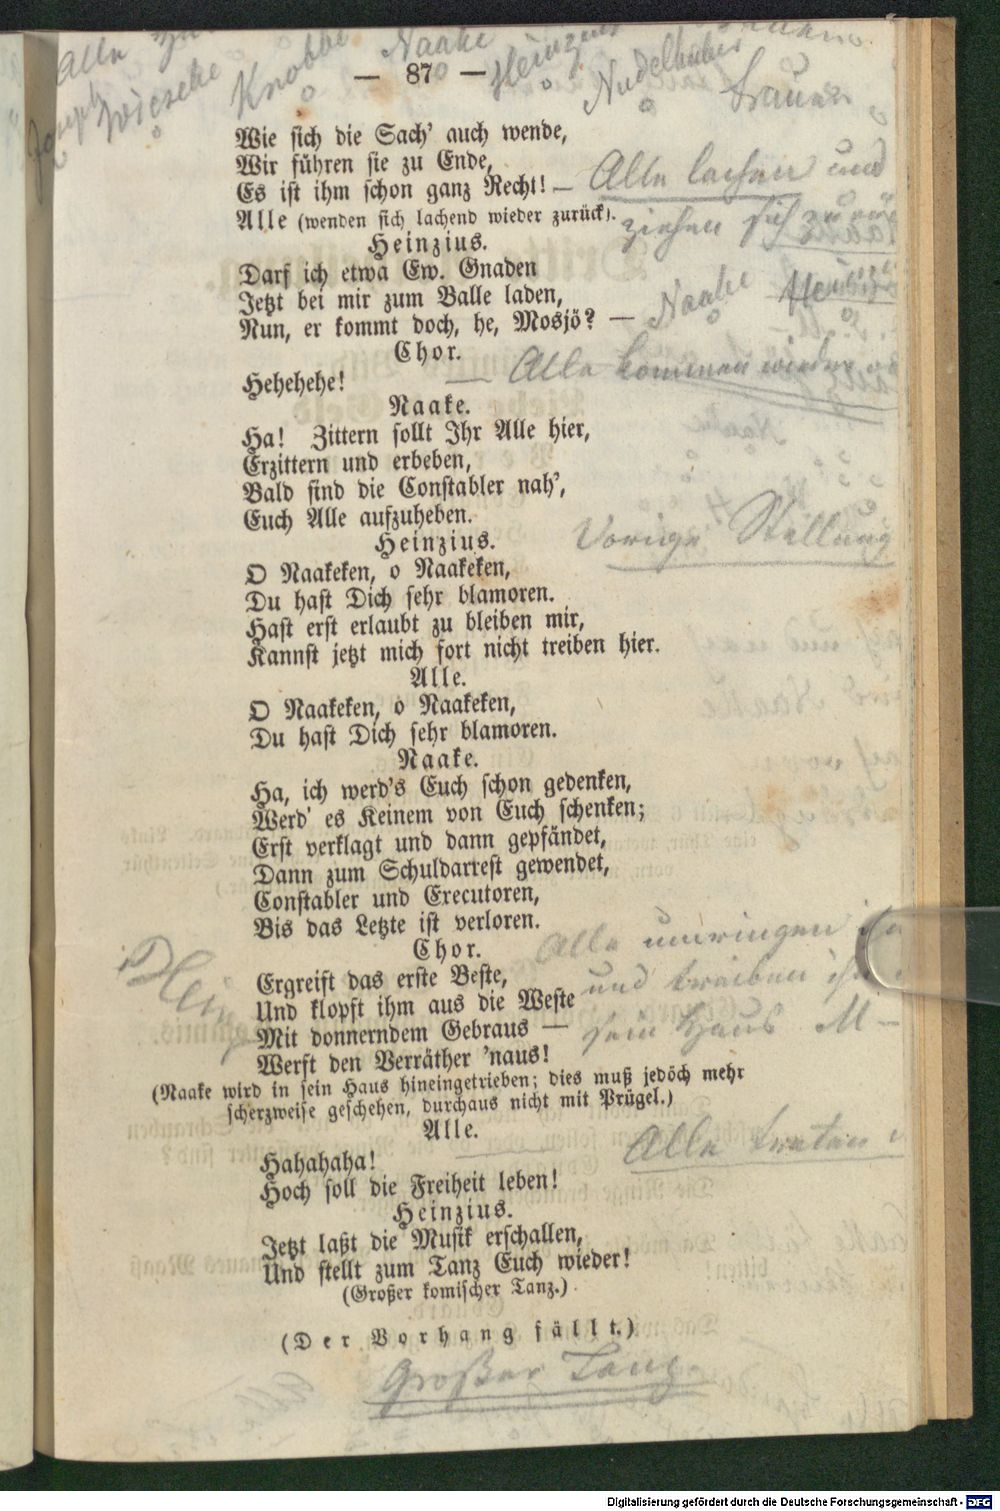 Alle
Joseph Wiesecke Knobbe Naake Heinzius Nudelhuber
Frauen
— 87 —
Wie sich die Sach' auch wende,
Wir führen sie zu Ende,
Es ist ihm schon ganz Recht! — Alle lachen und
Alle (wenden sich lachend wieder zurück). ziehen sich zurück
Heinzius.
Darf ich etwa Ew. Gnaden
Jetzt bei mir zum Balle laden,
Nun, er kommt doch, he, Mosjö? — Naake Heinzius
Chor.
Hehehehe! — Alle kommen wieder
Naake.
Ha! Zittern sollt Ihr Alle hier,
Erzittern und erbeben,
Bald sind die Constabler nah',
Euch Alle aufzuheben.
Heinzius. Vorige Stellung
O Naakeken, o Naakeken,
Du hast Dich sehr blamoren.
Hast erst erlaubt zu bleiben mir,
Kannst jetzt mich fort nicht treiben hier.
Alle.
O Naakeken, o Naakeken,
Du hast Dich sehr blamoren.
Naake.
Ha, ich werd's Euch schon gedenken,
Werd' es Keinem von Euch schenken;
Erst verklagt und dann gepfändet,
Dann zum Schuldarrest gewendet,
Constabler und Executoren,
Bis das Letzte ist verloren.
Chor. Alle umringen ihn
Ergreift das erste Beste, und treiben ihn
Und klopft ihm aus die Weste
Mit donnerndem Gebraus — sein Haus M—
Werft den Verräther 'naus!
(Naake wird in sein Haus hineingetrieben; dies muß jedoch mehr
scherzweise geschehen, durchaus nicht mit Prügel.)
Alle. Alle treten
Hahahaha!
Hoch soll die Freiheit leben!
Heinzius.
Jetzt laßt die Musik erschallen,
Und stellt zum Tanz Euch wieder!
(Großer komischer Tanz.)
(Der Vorhang fällt.)
Großer Tanz.
Digitalisierung gefördert durch die Deutsche Forschungsgemeinschaft - DFG